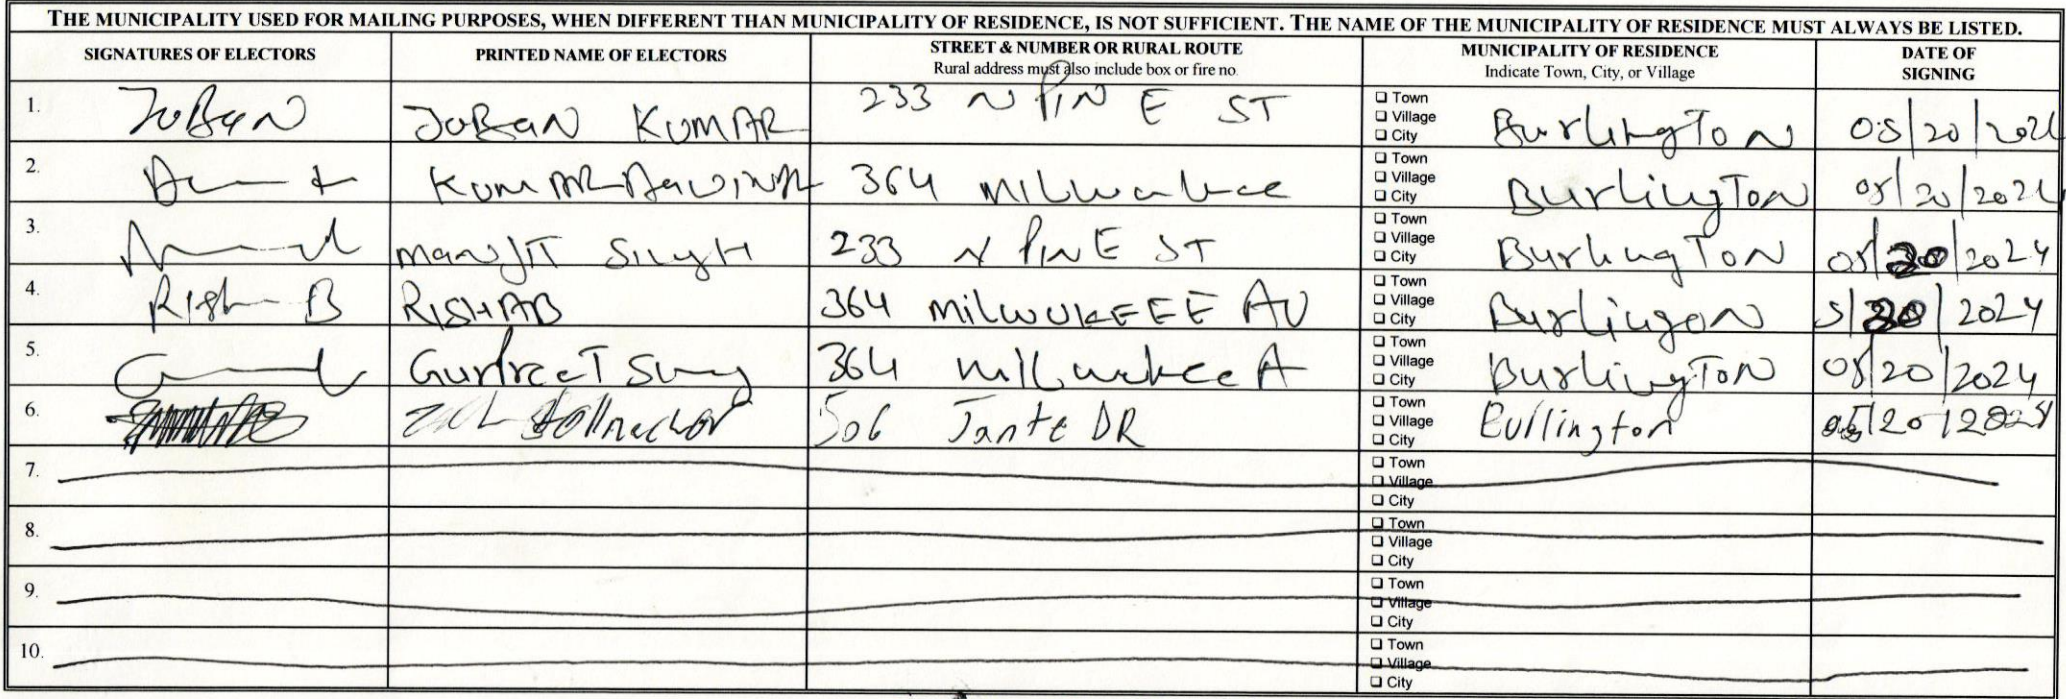 THE MUNICIPALITY USED FOR MAILING PURPOSES, WHEN DIFFERENT THAN MUNICIPALITY OF RESIDENCE, IS NOT SUFFICIENT. THE NAME OF THE MUNICIPALITY OF RESIDENCE MUST ALWAYS BE LISTED.
SIGNATURES OF ELECTORS PRINTED NAME OF ELECTORS STREET & NUMBER OR RURAL ROUTE MUNICIPALITY OF RESIDENCE DATE OF SIGNING
Rural address must also include box or fire no. Indicate Town, City, or Village
1. JoBaN JoBaN KUMAR 233 N PINE ST Town Village City Burlington 05/20/2024
2. KUMAR 364 milwakee Town Village City Burlington 05/20/2024
3. manJIT SingH 233 N PINE ST Town Village City Burlington 05/20/2024
4. RishaB RISHAB 364 MilwUKEEE AV Town Village City Burlingon 5/20/2024
5. GurPreeT Sing 364 milwakee A Town Village City Burlington 05/20/2024
6. 506 DR Town Village City Burlington 05/20/2024
7. Town Village City
8. Town Village City
9. Town Village City
10. Town Village City